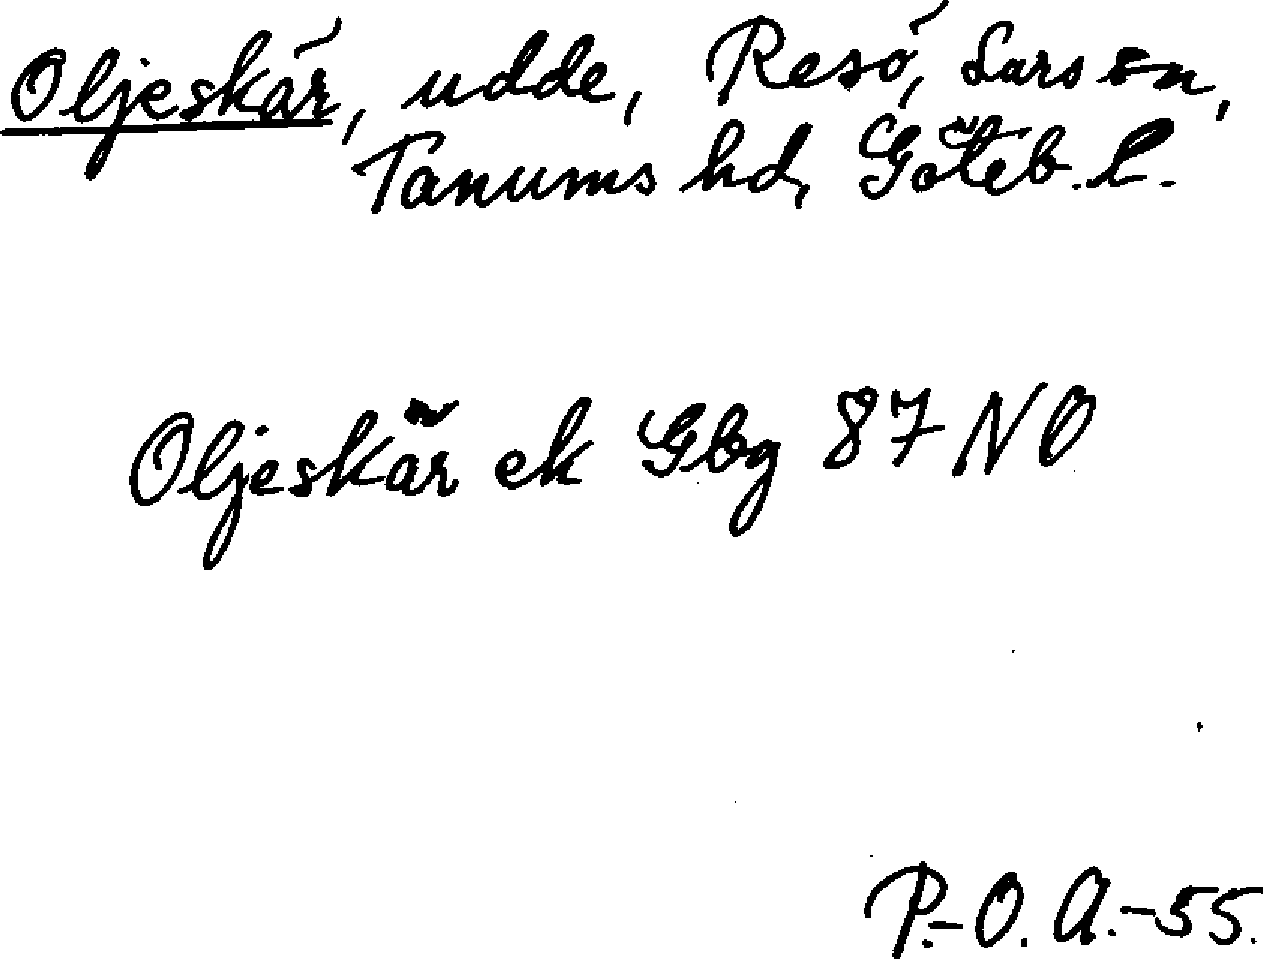 Oljeskär, udde, Resö, Lurs sn,
Tanums hd, Göteb. l.
Oljeskär ek Gbg 87 NO
P.-O. A.-55.